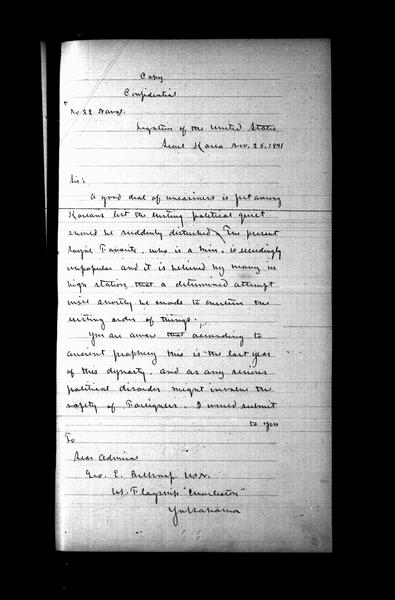 Copy
Confidential
No. 22 Naval.
Legation of the United States
Seoul Korea Nov. 25. 1891
Sir:
A good deal of uneasiness is felt among
Koreans lest the existing political quiet
should be suddenly disturbed. The present
royal Favorite, who is a Min, is exceedingly
unpopular and it is believed by many in
high station, that a determined attempt
will shortly be made to overturn the
existing order of things.
You are aware that according to
ancient prophecy this is the last year
of this dynasty, and as any serious
political disorder might involve the
safety of Foreigners, I would submit
to you
To
Rear Admiral
Geo. E. Belknap. U.S.N.
U.S. Flagship "Charleston"
Yokohama